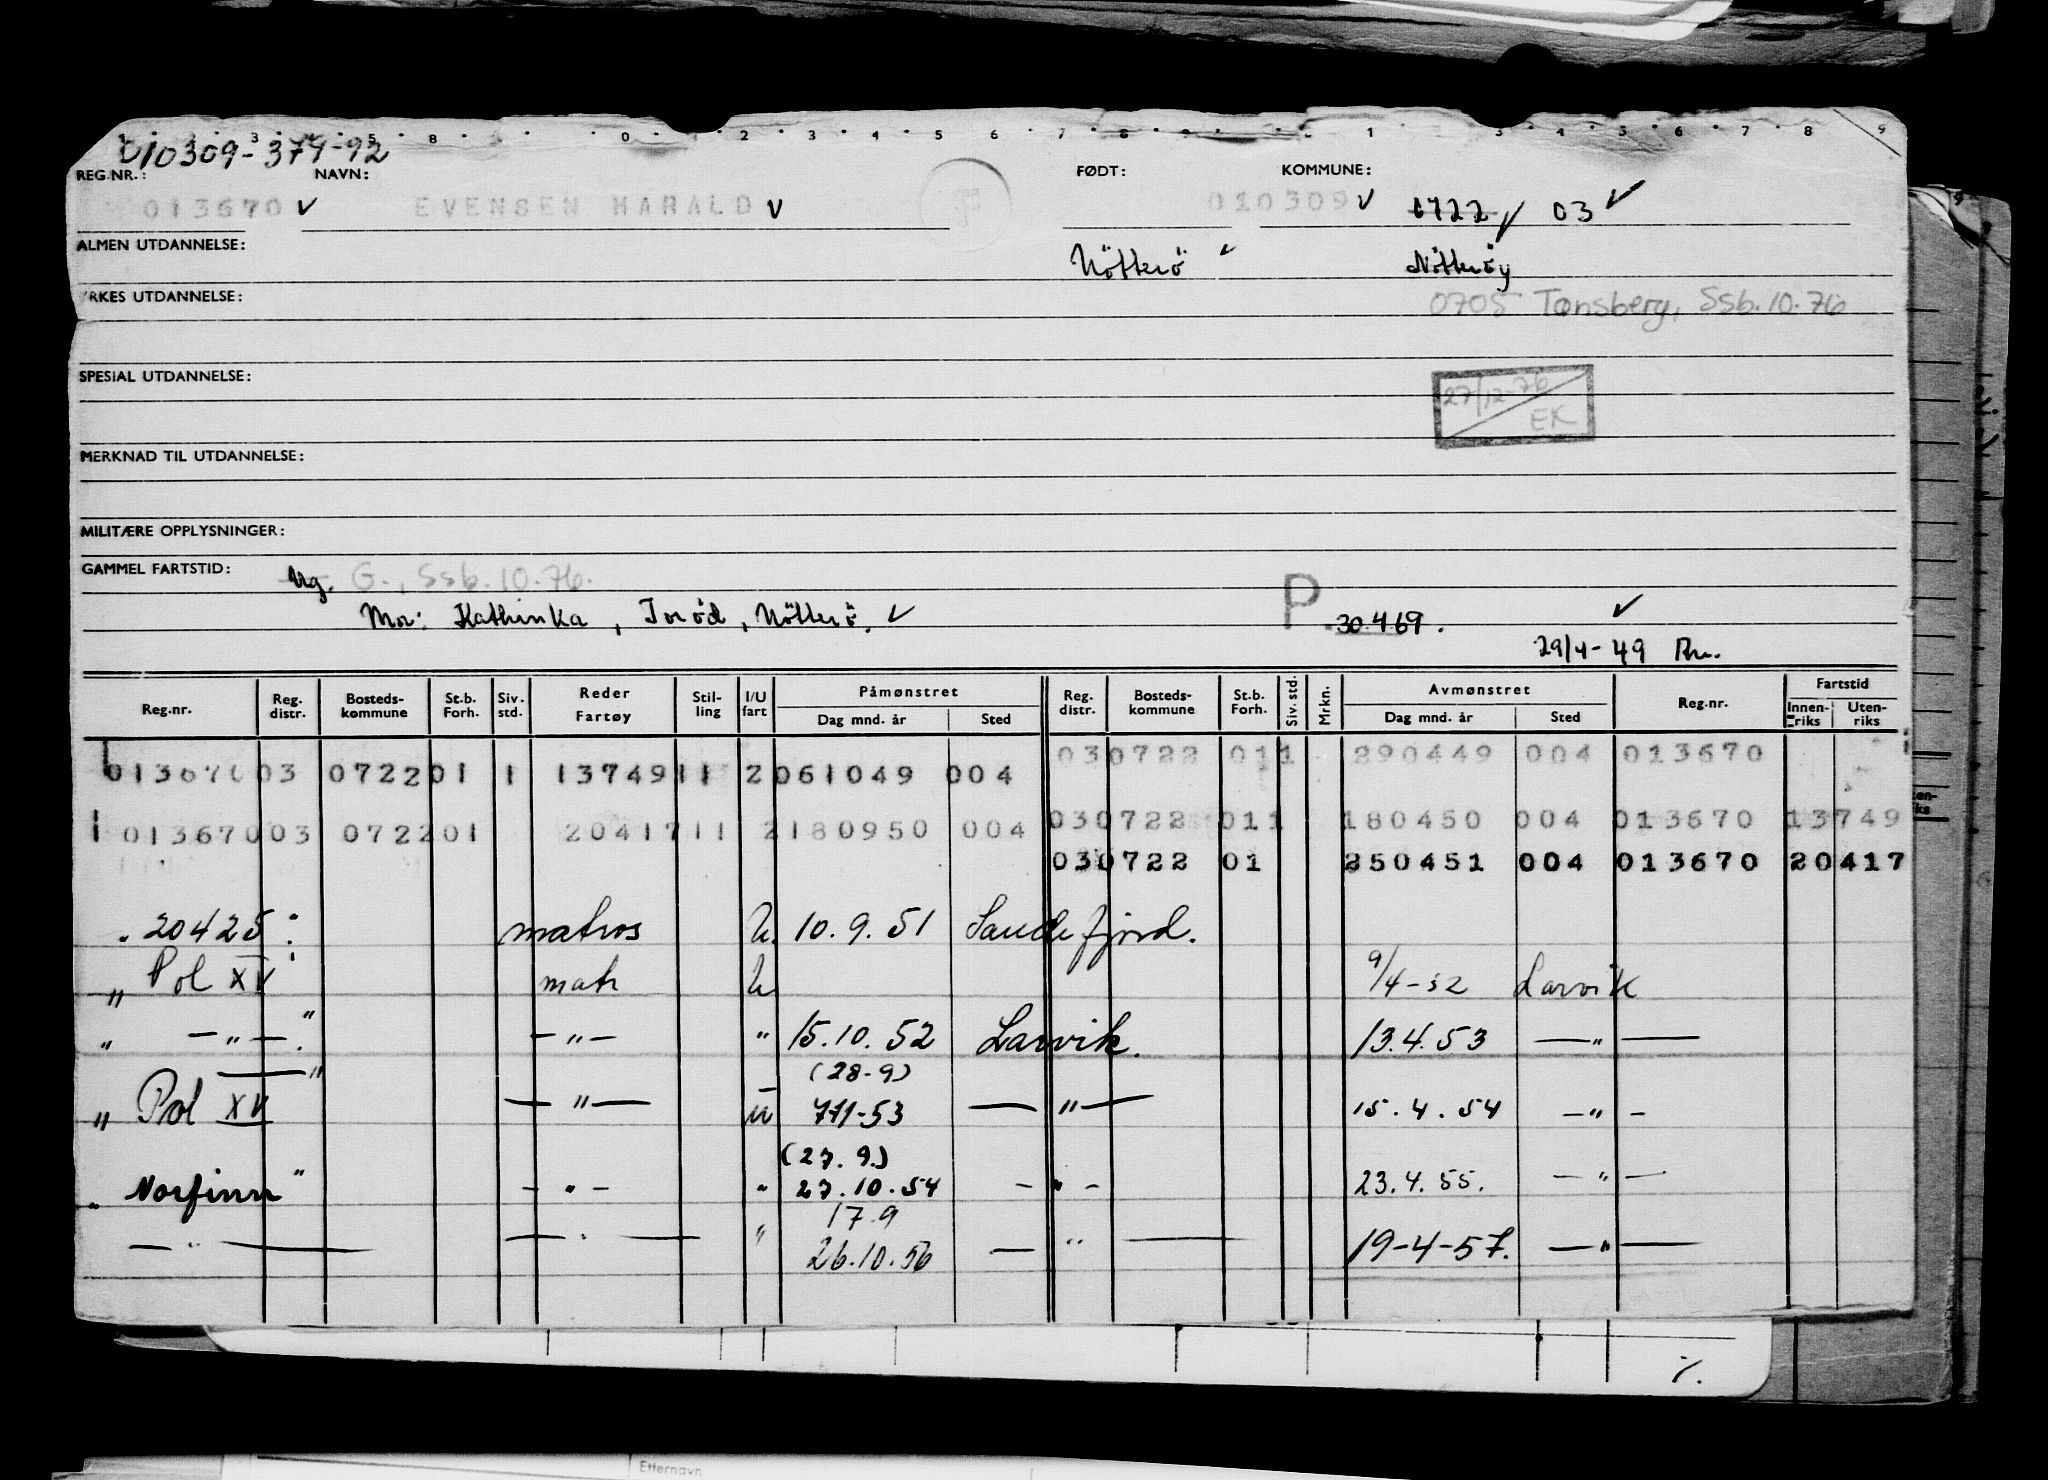 010309-374-92
REG.NR.: NAVN: FØDT: KOMMUNE:
013670 v EVENSEN HARALD v 010309 v 0722 v 03 v
ALMEN UTDANNELSE: Nötterö v Nötteröy
YRKES UTDANNELSE: 0705 Tønsberg, Ssb. 10. 76
SPESIAL UTDANNELSE:
27/12-76
EK
MERKNAD TIL UTDANNELSE:
MILITÆRE OPPLYSNINGER:
GAMMEL FARTSTID: Ug. G., Ssb. 10. 76.
Mor: Kathinka, Torød, Nötterö. v P 30.4.69.
29/4-49
Reg.nr. Reg. distr. Bosteds-kommune St.b. Forh. Siv. std. Reder Fartøy Stil-ling I/U fart Påmønstret Dag mnd. år Sted Reg. distr. Bosteds-kommune St.b. Forh. Siv. std. Mrkn. Avmønstret Dag mnd. år Sted Reg.nr. Fartstid Innen-riks Uten-riks
030722 011 290449 004 013670
013670 03 0722 01 1 13749 11 2 061049 004
030722 011 180450 004 013670 13749
013670 03 0722 01 20417 11 2 180950 004
030722 01 250451 004 013670 20417
" 20425 " matros U. 10.9.51 Sandefjord.
" Pol XV " matr U 9/4-52 Larvik
" — " — " — " — " 15.10.52 Larvik. 13.4.53 — " —
(28-9)
" Pol XV " — " — U 7/1-53 — " — 15.4.54 — " —
(27.9.)
" Norfinn " — " — " 27.10.54 — " — 23.4.55. — " —
17.9
— " — — " — " 26.10.56 — " — 19-4-57. — " —
Etternavn